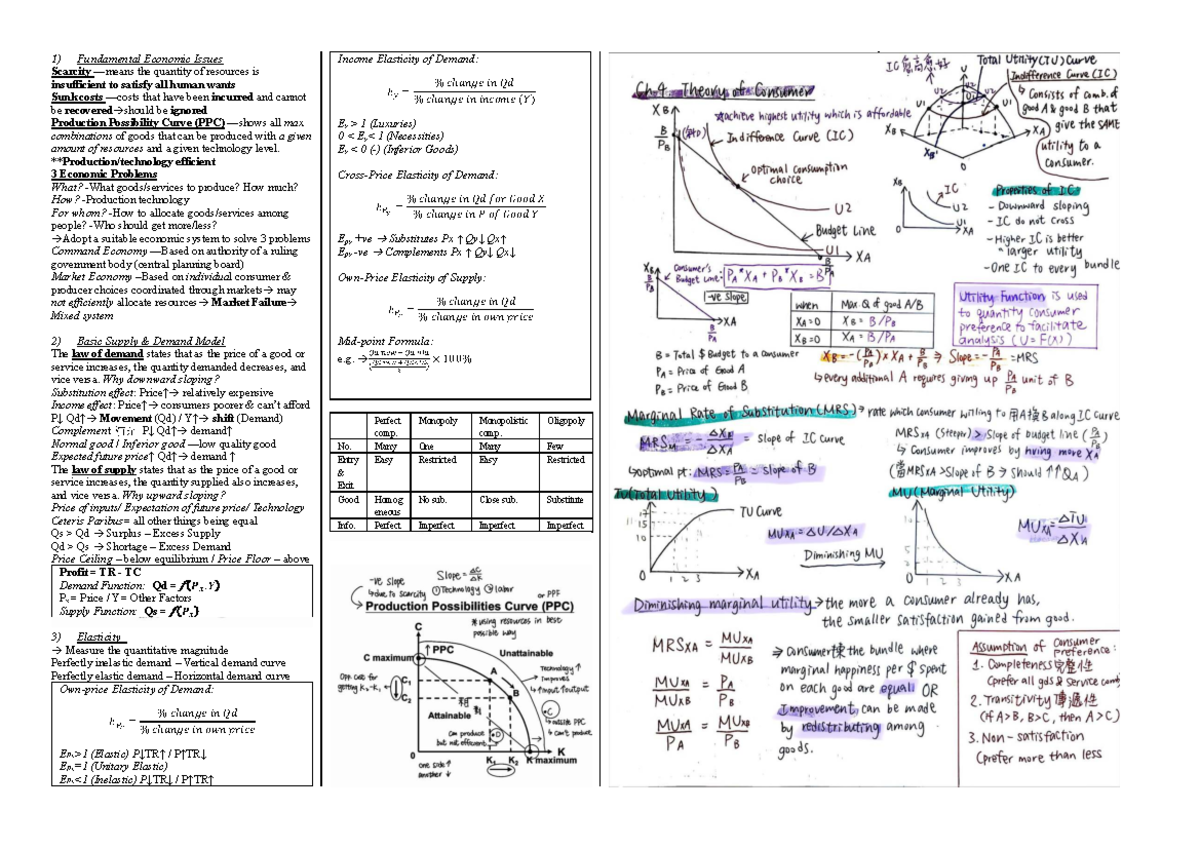 1) Fundamental Economic Issues
Scarcity —means the quantity of resources is
insufficient to satisfy all human wants
Sunk costs —costs that have been incurred and cannot
be recovered→should be ignored
Production Possibility Curve (PPC) —shows all max
combinations of goods that can be produced with a given
amount of resources and a given technology level.
**Production/technology efficient
3 Economic Problems
What? -What goods/services to produce? How much?
How? -Production technology
For whom? -How to allocate goods/services among
people? -Who should get more/less?
→Adopt a suitable economic system to solve 3 problems
Command Economy —Based on authority of a ruling
government body (central planning board)
Market Economy –Based on individual consumer &
producer choices coordinated through markets→ may
not efficiently allocate resources → Market Failure→
Mixed system
2) Basic Supply & Demand Model
The law of demand states that as the price of a good or
service increases, the quantity demanded decreases, and
vice versa. Why downward sloping?
Substitution effect: Price↑→ relatively expensive
Income effect: Price↑→ consumers poorer & can't afford
P↓ Qd↑→ Movement (Qd) / Y↑→ shift (Demand)
Complement P↓ Qd↑→ demand↑
Normal good / Inferior good —low quality good
Expected future price↑ Qd↑→ demand ↑
The law of supply states that as the price of a good or
service increases, the quantity supplied also increases,
and vice versa. Why upward sloping?
Price of inputs/ Expectation of future price/ Technology
Ceteris Paribus= all other things being equal
Qs > Qd → Surplus – Excess Supply
Qd > Qs → Shortage – Excess Demand
Price Ceiling – below equilibrium / Price Floor – above
Profit = TR - TC
Demand Function: Qd = f(Pₓ, Y)
Pₓ = Price / Y = Other Factors
Supply Function: Qs = f(Pₓ)
3) Elasticity
→ Measure the quantitative magnitude
Perfectly inelastic demand – Vertical demand curve
Perfectly elastic demand – Horizontal demand curve
Own-price Elasticity of Demand:
E_Px = % change in Qd / % change in own price
E_Px>1 (Elastic) P↓TR↑ / P↑TR↓
E_Px=1 (Unitary Elastic)
E_Px<1 (Inelastic) P↓TR↓ / P↑TR↑
Income Elasticity of Demand:
E_y = % change in Qd / % change in income (Y)
E_y > 1 (Luxuries)
0 < E_y < 1 (Necessities)
E_y < 0 (-) (Inferior Goods)
Cross-Price Elasticity of Demand:
E_Py = % change in Qd for Good X / % change in P of Good Y
E_py +ve → Substitutes Px ↑ Qy↓ Qx↑
E_py -ve → Complements Px ↑ Qy↓ Qx↓
Own-Price Elasticity of Supply:
E_Px = % change in Qd / % change in own price
Mid-point Formula:
e.g. → × 100%
Perfect comp. Monopoly Monopolistic comp. Oligopoly
No. Many One Many Few
Entry & Exit Easy Restricted Easy Restricted
Good Homogeneous No sub. Close sub. Substitute
Info. Perfect Imperfect Imperfect Imperfect
-ve slope Slope = ΔC/ΔK
↳due to scarcity ①Technology ②labor or PPF
Production Possibilities Curve (PPC)
*using resources in best
possible way
C
↑ PPC Unattainable
C maximum
A
Technology↑
improved
↳↑input↑output
Opp. cost for
getting K₂-K₁
C₁
C₂
B
Attainable
C
↳outside PPC
↳can't produce
can produce
but not efficient
D
0
K₁ K₂ K maximum
K
one side↑
another ↓
Ch.4. Theory of Consumer
*achieve highest utility which is affordable
XB
B/PB
Indifference Curve (IC)
Optimal consumption
choice
U2
Budget Line
U1
B/PB
XA
0
IC愈高愈好
Total Utility (TU) Curve
Indifference Curve (IC)
↳ Consists of comb. of
good A & good B that
give the SAME
utility to a
consumer.
U
U1
U2
U1
XB
XA
XB'
0
XB
IC
U2
U1
0
XA
Properties of IC:
- Downward sloping
- IC do not cross
- Higher IC is better
"larger utility
- One IC to every bundle
XB
B/PB
Consumer's
Budget Line: PA*XA + PB*XB = B
-ve slope
B/PB
XA
when Max Q of good A/B
XA=0 XB = B/PB
XB=0 XA = B/PA
Utility Function is used
to quantity consumer
preference to facilitate
analysis (U=F(X))
B = Total $ Budget to a consumer
PA = Price of Good A
PB = Price of Good B
XB = -(PA/PB) x XA + B/PB ⇒ Slope = -PA/PB = MRS
↳every additional A requires giving up PA/PB unit of B
Marginal Rate of Substitution (MRS)→ rate which consumer willing to 用A換B along IC curve
MRS = - ΔXB/ΔXA = slope of IC curve
↳optimal pt: MRS = PA/PB = slope of B
MRSXA (Steeper) > Slope of budget line (PA/PB)
↳ Consumer improves by having more XA
(當MRSXA >Slope of B → should ↑↑QA)
TU (Total Utility)
17
15
10
TU Curve
0 1 2 3
XA
MUXA = ΔU/ΔXA
Diminishing MU
MU (Marginal Utility)
0 1 2 3
XA
MUXA = ΔTU/ΔXA
Diminishing marginal utility→ the more a consumer already has,
the smaller satisfaction gained from good.
MRSXA = MUXA/MUXB
MUXA/MUXB = PA/PB
MUXA/PA = MUXB/PB
⇒ Consumer揀 the bundle where
marginal happiness per $ spent
on each good are equal! OR
Improvement, can be made
by redistributing among
goods.
Assumption of Consumer
Preference:
1. Completeness完整性
(prefer all gds & service comb
2. Transitivity 傳遞性
(if A>B, B>C, then A>C)
3. Non-satisfaction
(prefer more than less